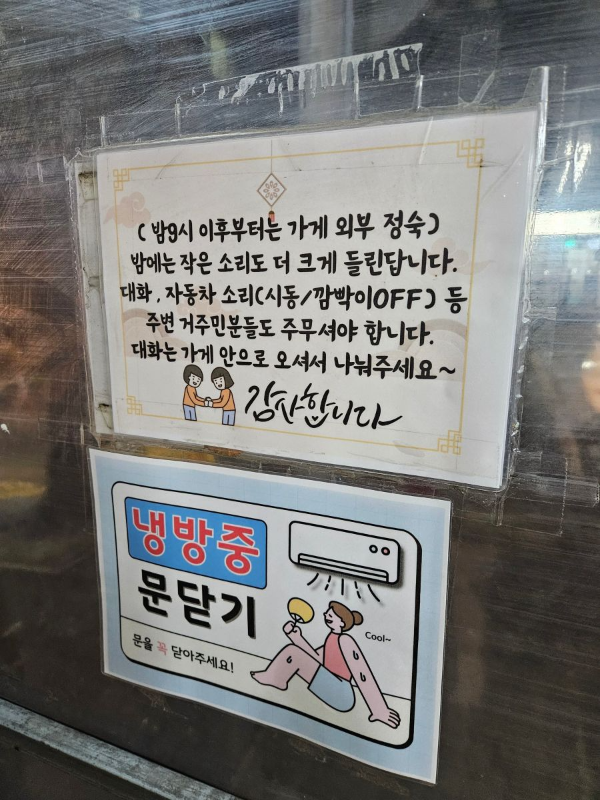 ( 밤9시 이후부터는 가게 외부 정숙)
밤에는 작은 소리도 더 크게 들린답니다.
대화, 자동차 소리(시동/깜빡이OFF) 등
주변 거주민분들도 주무셔야 합니다.
대화는 가게 안으로 오셔서 나눠주세요~
감사합니다
냉방중
문닫기
Cool~
문을 꼭 닫아주세요!